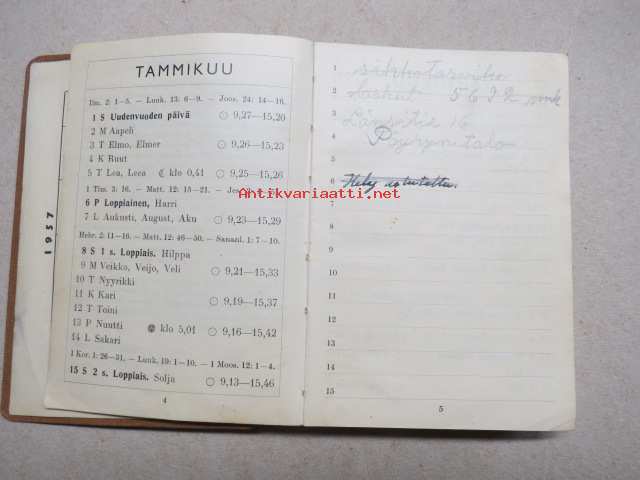 1957
TAMMIKUU
Tim. 2: 1—5. — Luuk. 13: 6—9. — Joos. 24: 14—16.
1 S Uudenvuoden päivä ○ 9,27—15,20
2 M Aapeli
3 T Elmo, Elmer ○ 9,26—15,23
4 K Ruut
5 T Lea, Leea ☾ klo 0,41 ○ 9,25—15,26
1 Tim. 3: 16. — Matt. 12: 15—21. —
6 P Loppiainen, Harri
7 L Aukusti, August, Aku ○ 9,23—15,29
Hebr. 2: 11—16. — Matt. 12: 46—50. — Sananl. 1: 7—10.
8 S 1 s. Loppiais. Hilppa
9 M Veikko, Veijo, Veli ○ 9,21—15,33
10 T Nyyrikki
11 K Kari ○ 9,19—15,37
12 T Toini
13 P Nuutti ● klo 5,01 ○ 9,16—15,42
14 L Sakari
1 Kor. 1: 26—31. — Luuk. 19: 1—10. — 1 Moos. 12: 1—4.
15 S 2 s. Loppiais. Solja ○ 9,13—15,46
4
1 sähkötarvike
2 laskut 5692 mk
3 Länsitie 16
4
5
6
7
8
9
10
11
12
13
14
15
5
Antikvariaatti.net